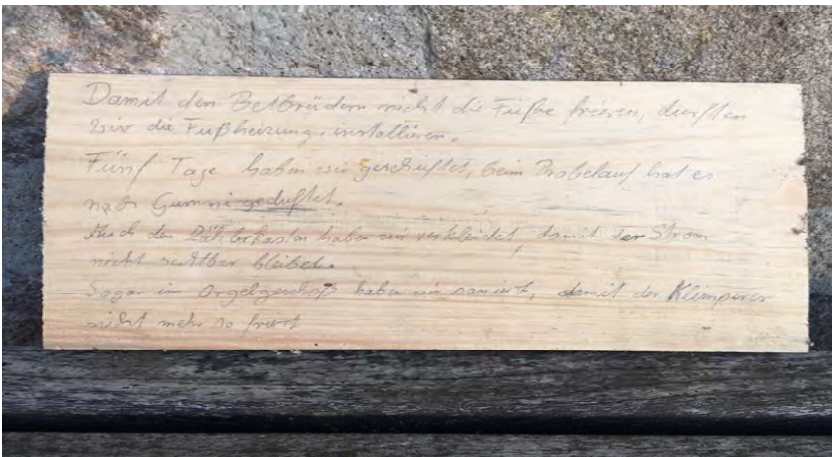 Damit den Betbrüdern nicht die Füße frieren, durften
wir die Fußheizung installieren.
Fünf Tage haben wir geschuftet, beim Probelauf hat es
nach Gummi geduftet.
Auch den Zählerkasten haben wir verkleidet, damit der Strom
nicht sichtbar bleibet.
Sogar im Orgelgeschoß haben wir saniert, damit der Klimperer
nicht mehr so friert